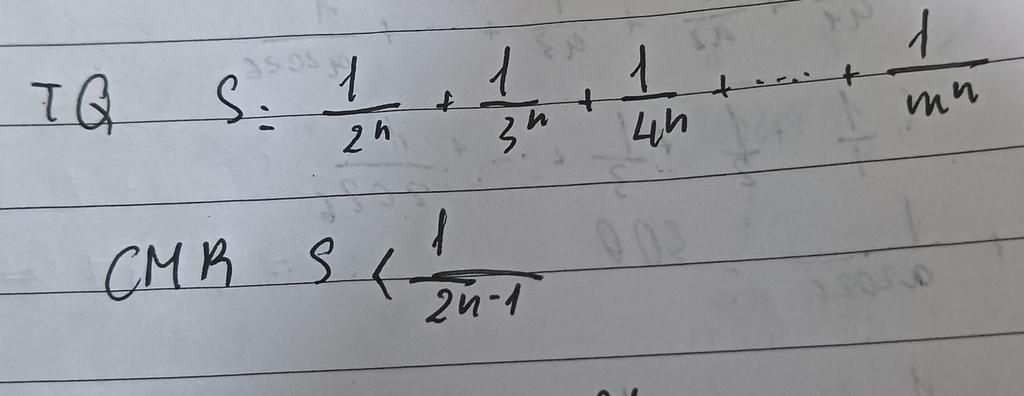 TQ S = 1/2ⁿ + 1/3ⁿ + 1/4ⁿ + .... + 1/mⁿ
CMR S < 1/2n-1